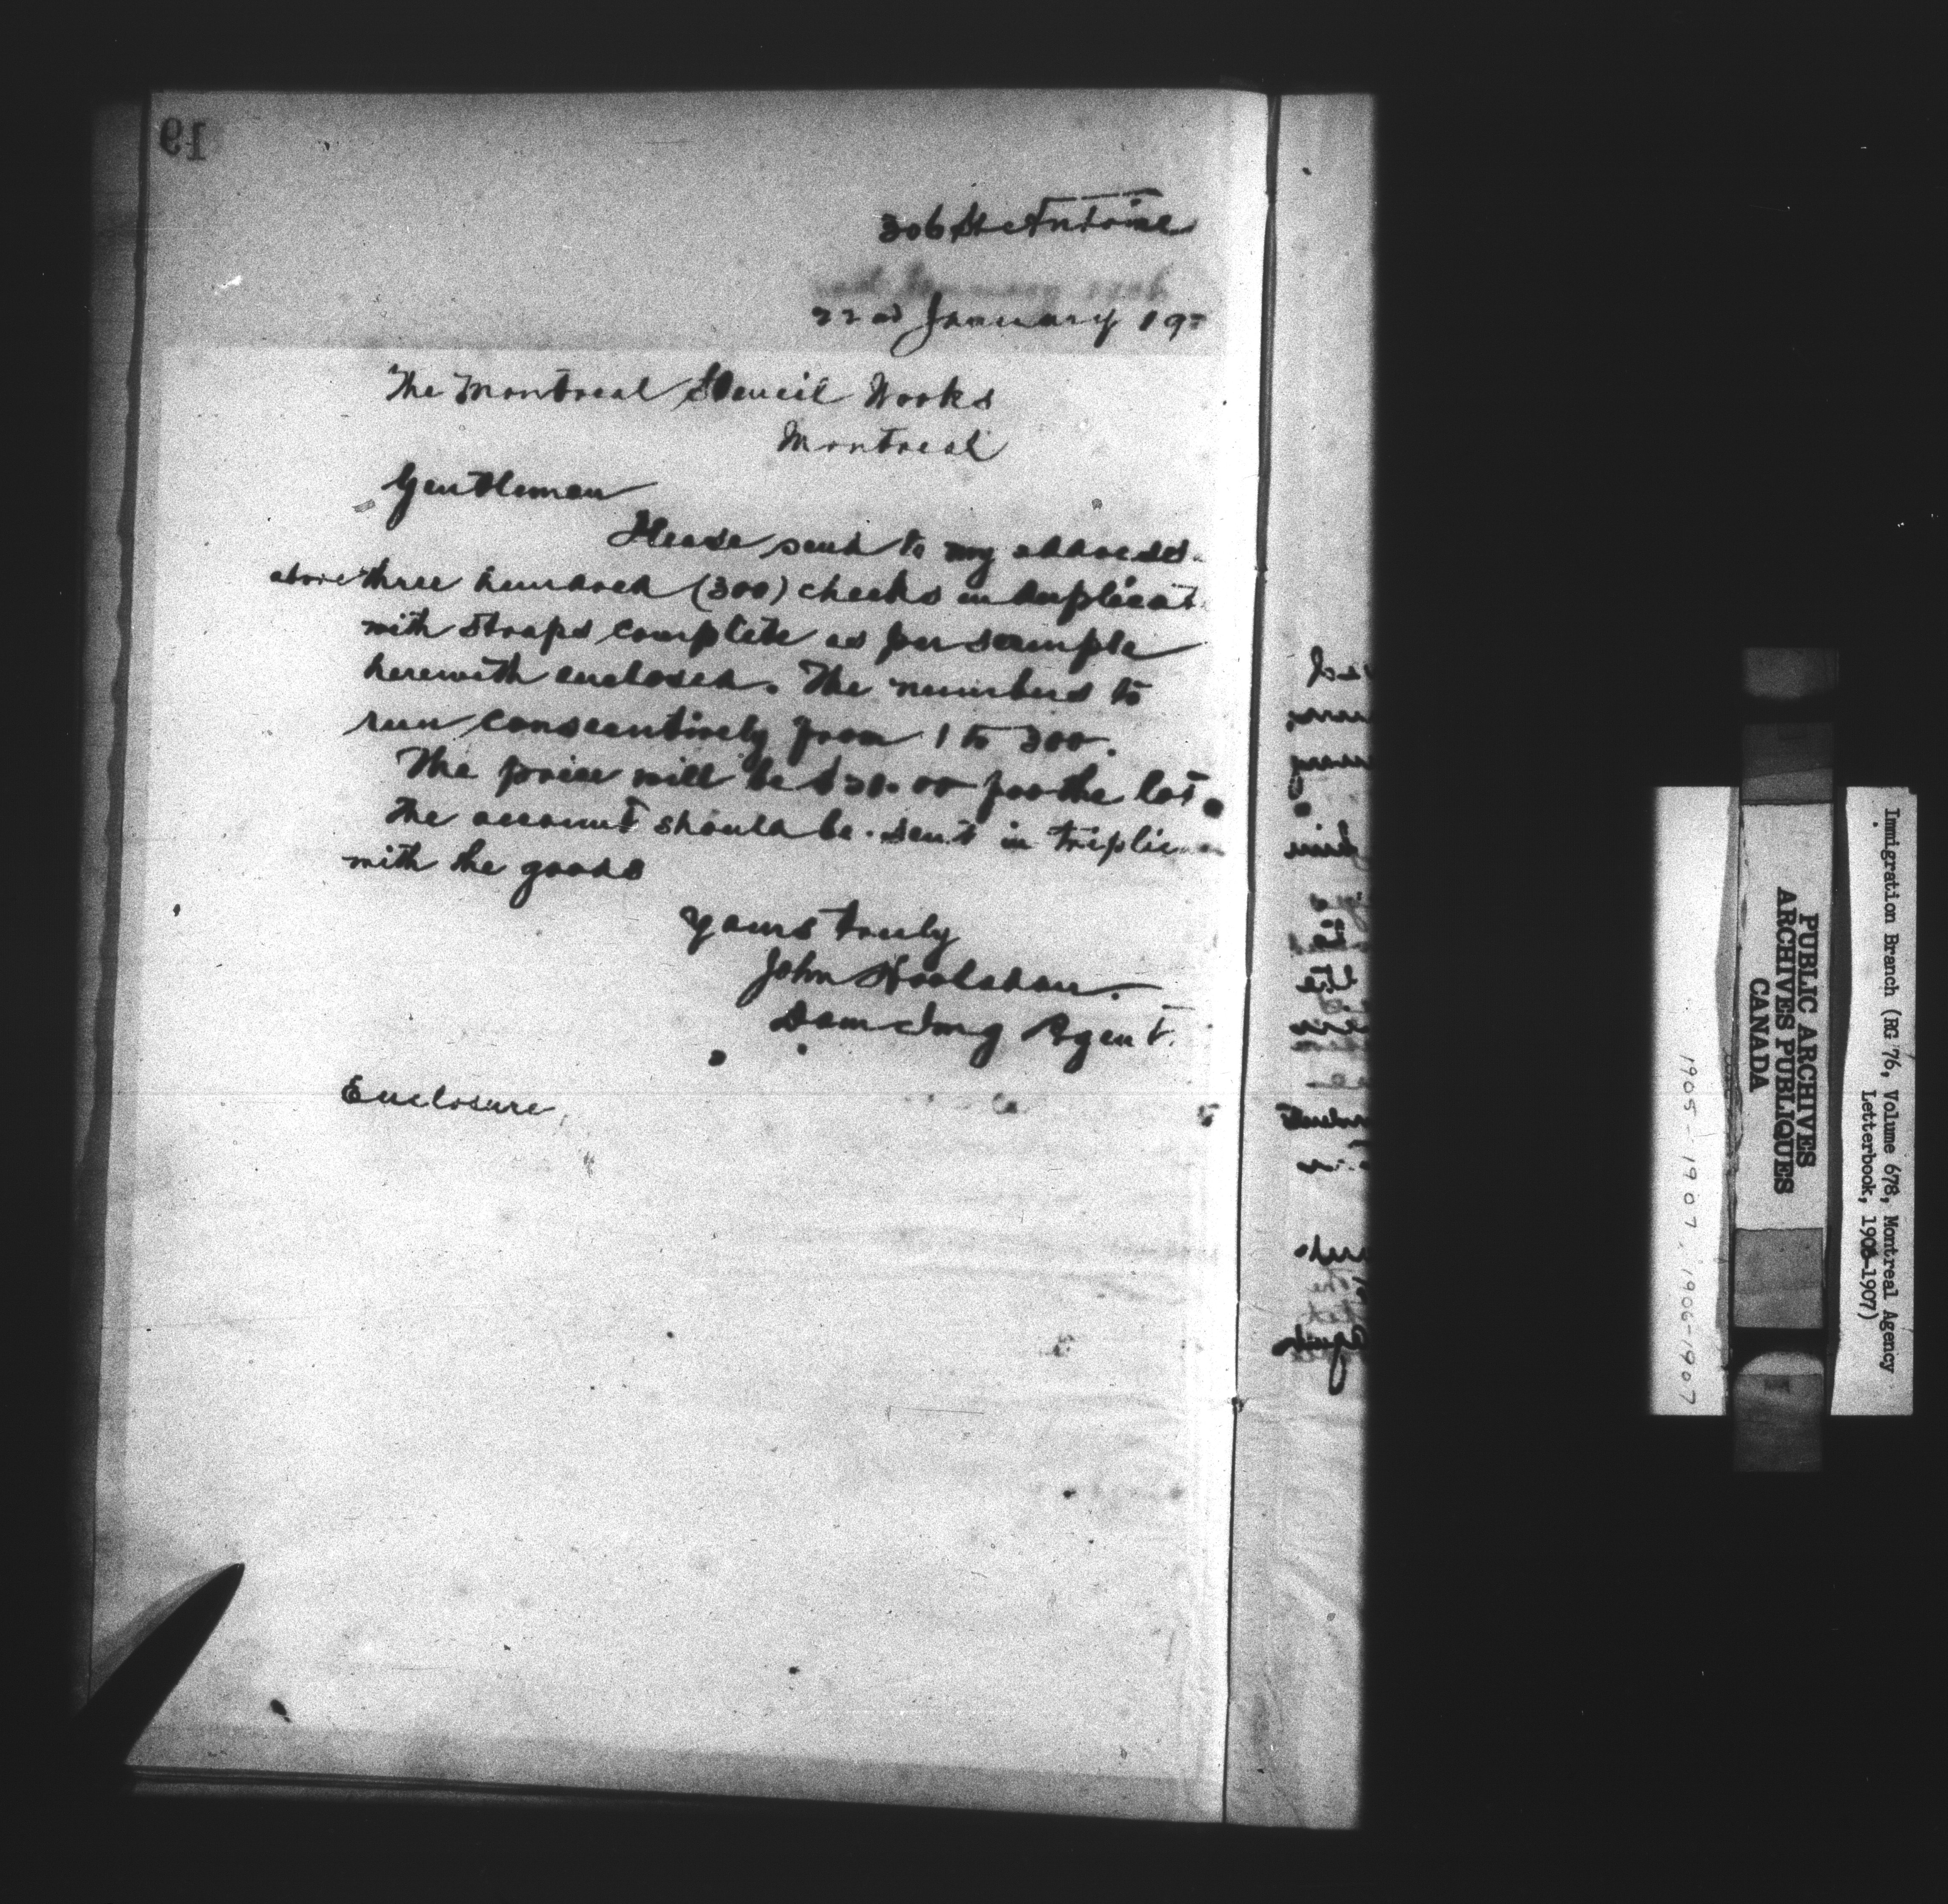 19
306 St Antoine
22nd January 19
The Montreal Stencil Works
Montreal
Gentlemen
Please send to my address
above three hundred (300) checks in duplicat
with straps complete as per sample
herewith enclosed. The numbers to
run consecutively from 1 to 300.
The price will be $30.00 for the lot.
The account should be sent in triplic
with the goods
Yours truly
John Hoolahan.
Dom Img Agent.
Enclosure
PUBLIC ARCHIVES
ARCHIVES PUBLIQUES
CANADA
Immigration Branch (RG 76, Volume 678, Montreal Agency
Letterbook, 1906-1907)
1905-1907, 1906-1907